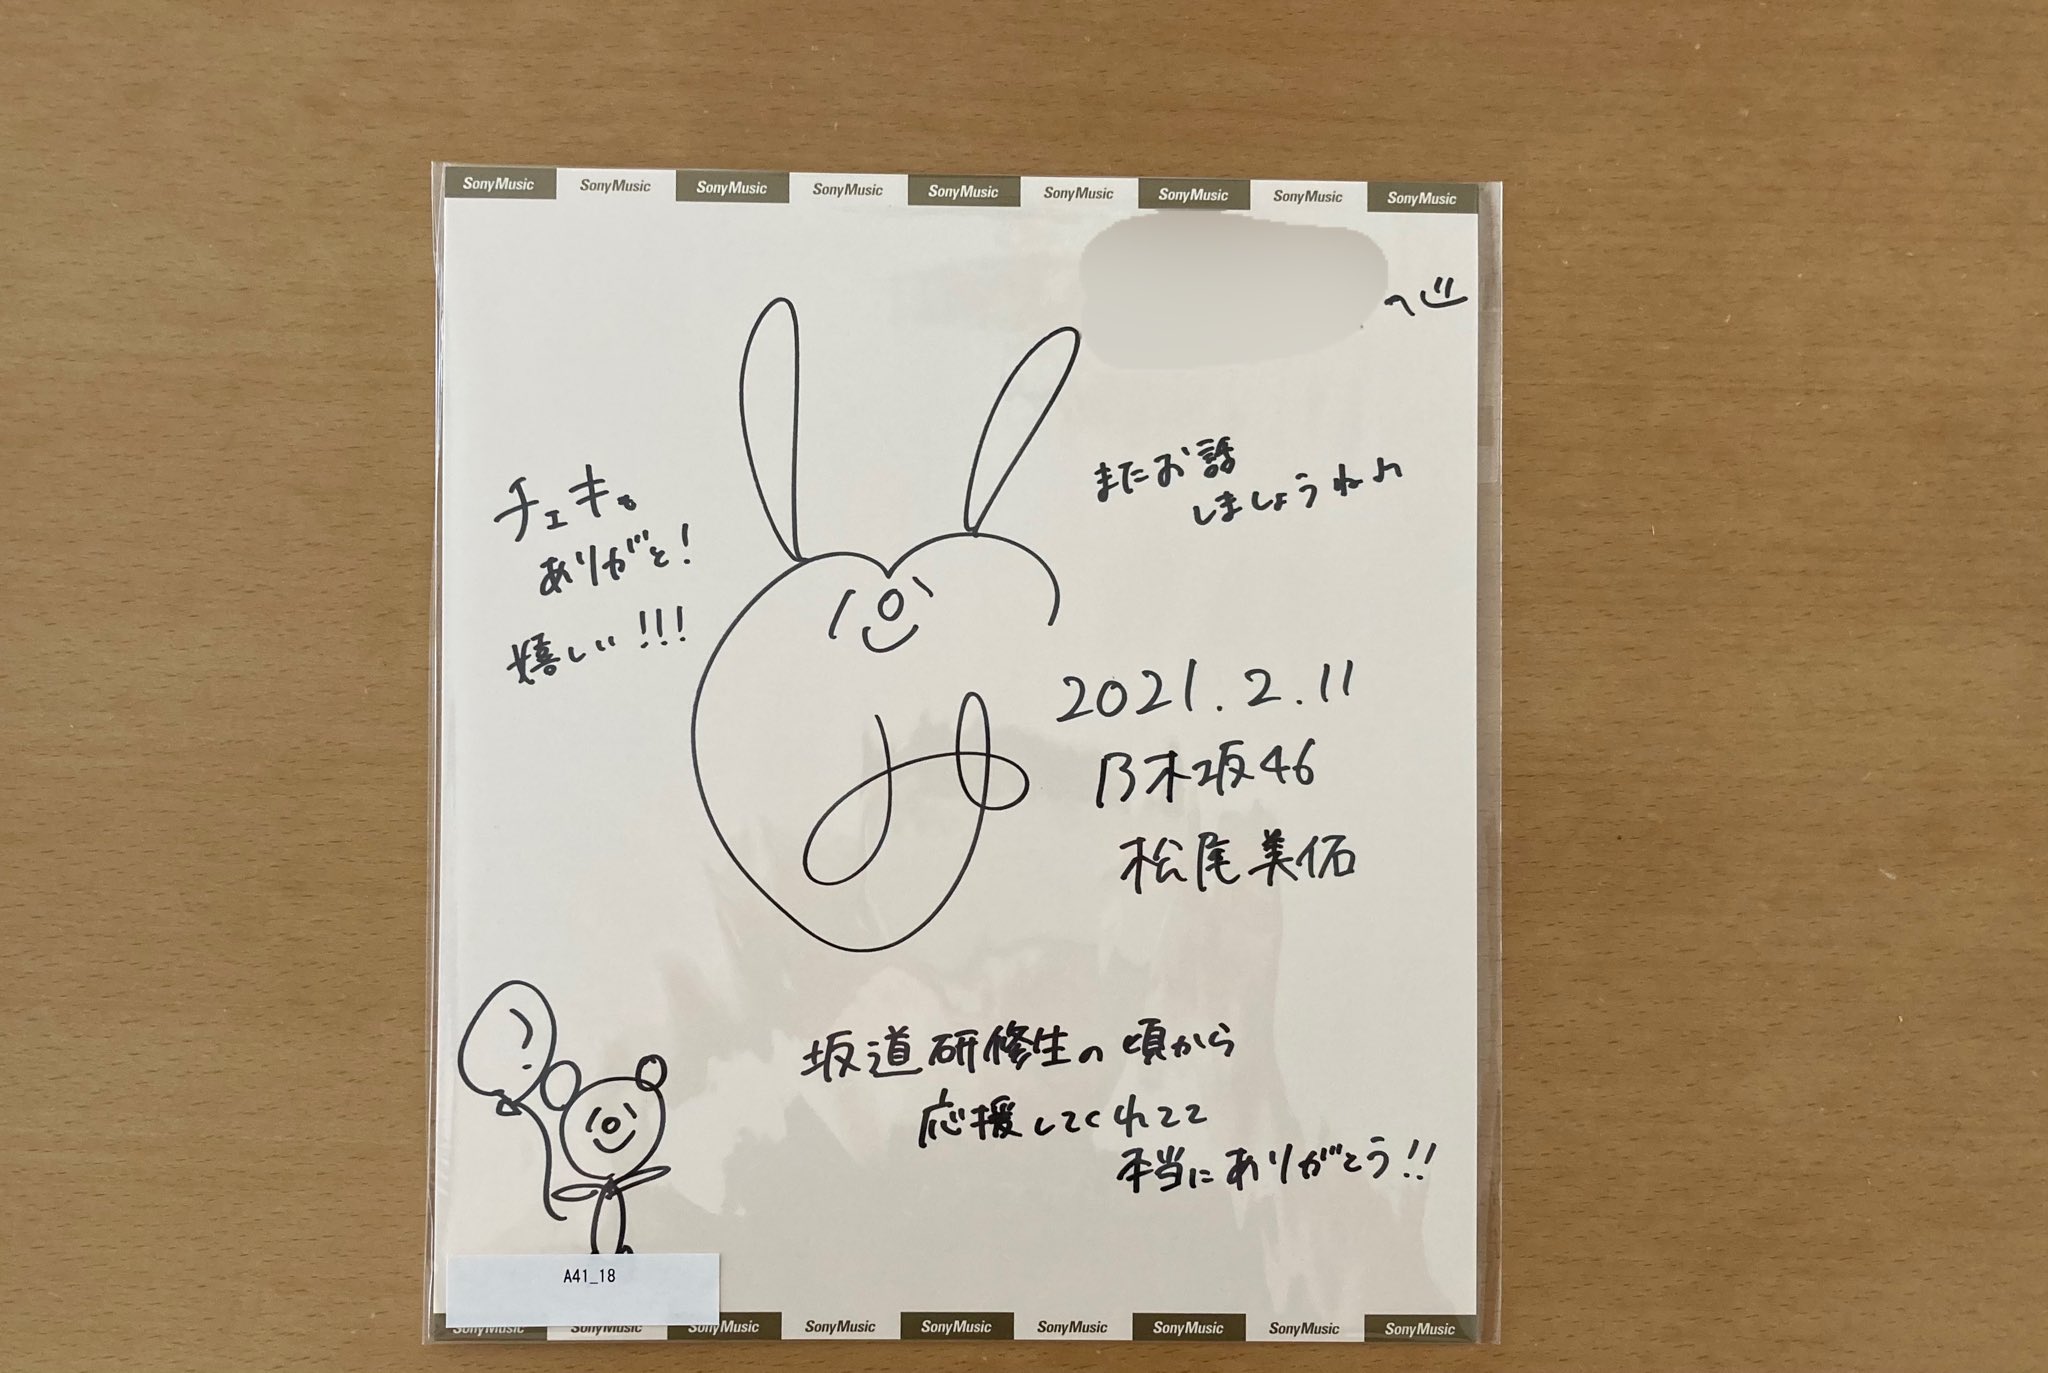 SonyMusic SonyMusic SonyMusic SonyMusic SonyMusic SonyMusic SonyMusic SonyMusic SonyMusic
へ
またお話
しましょうね♪
チェキも
ありがと!
嬉しい!!!
2021.2.11
乃木坂46
松尾美佑
坂道研修生の頃から
応援してくれてて
本当にありがとう!!
A41_18
SonyMusic SonyMusic SonyMusic SonyMusic SonyMusic SonyMusic SonyMusic SonyMusic SonyMusic